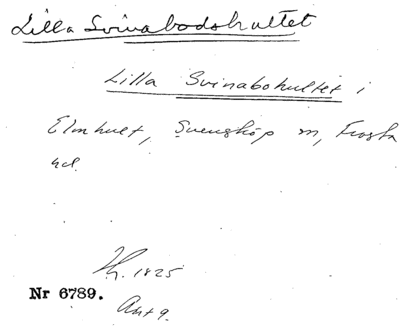 Lilla Svinabodshultet
Lilla Svinabohultet i
Elmhult, Svensköp sn, Frosta
hd.
1825
Nr 6789.
Ant 9.